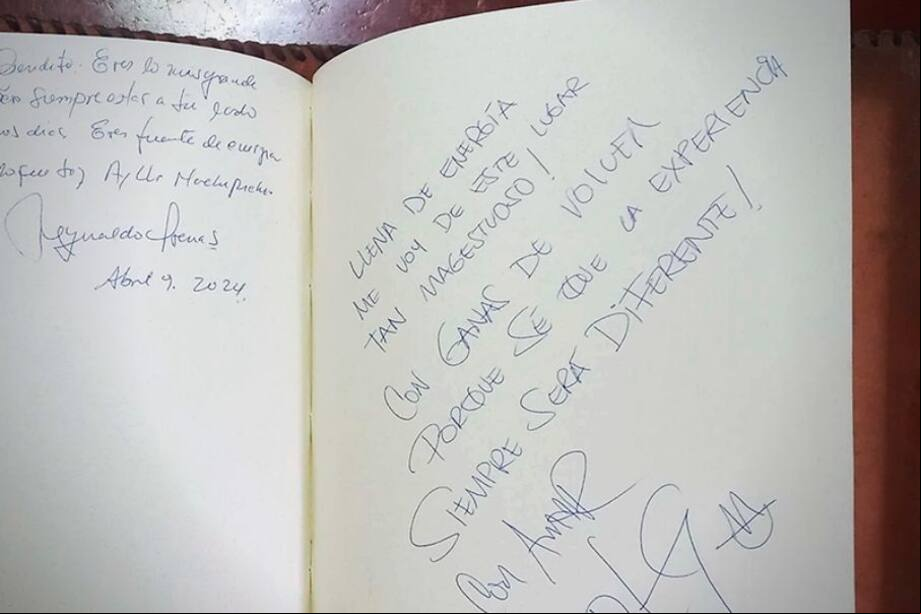 Bendito. Eres lo mas grande
siempre estas a tu lado
dias. Eres fuente de energia
Ayllu Machupicchu.
Reynaldo Arenas
Abril 9. 2024
LLENA DE ENERGÍA
ME VOY DE ESTE LUGAR
TAN MAGESTUOSO!
CON GANAS DE VOLVER
PORQUE SÉ QUE LA EXPERIENCIA
SIEMPRE SERÁ DIFERENTE!
CON AMOR